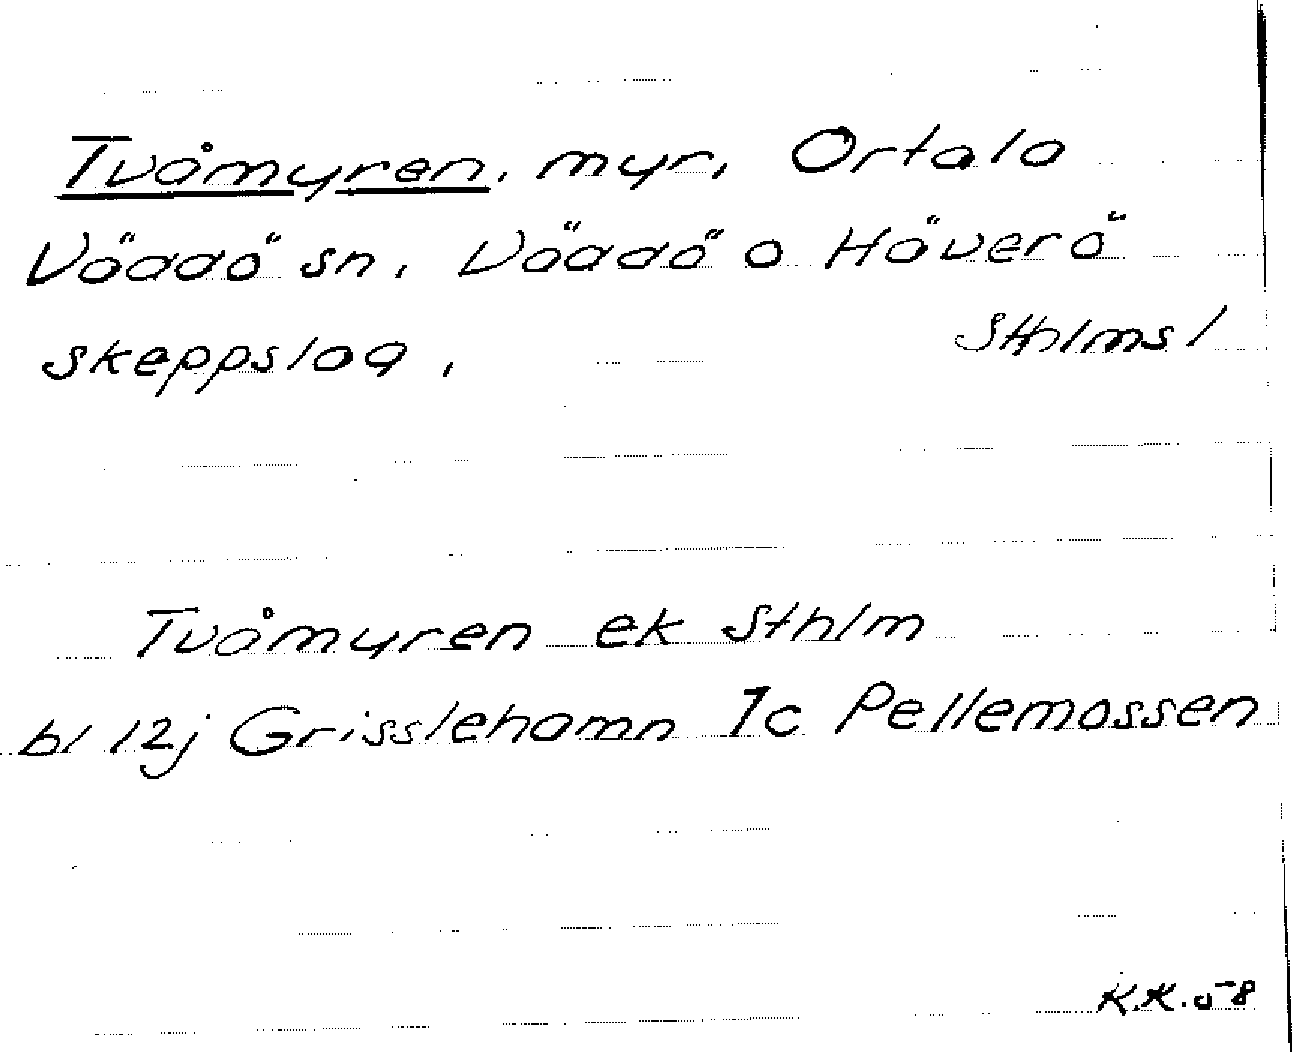 Tvåmyren, myr, Ortala
Väddö sn, Väddö o Häverö
skeppslag, Sthlms l
Tvåmyren ek Sthlm
bl 12j Grisslehamn 7c Pellemossen
K.K. 58